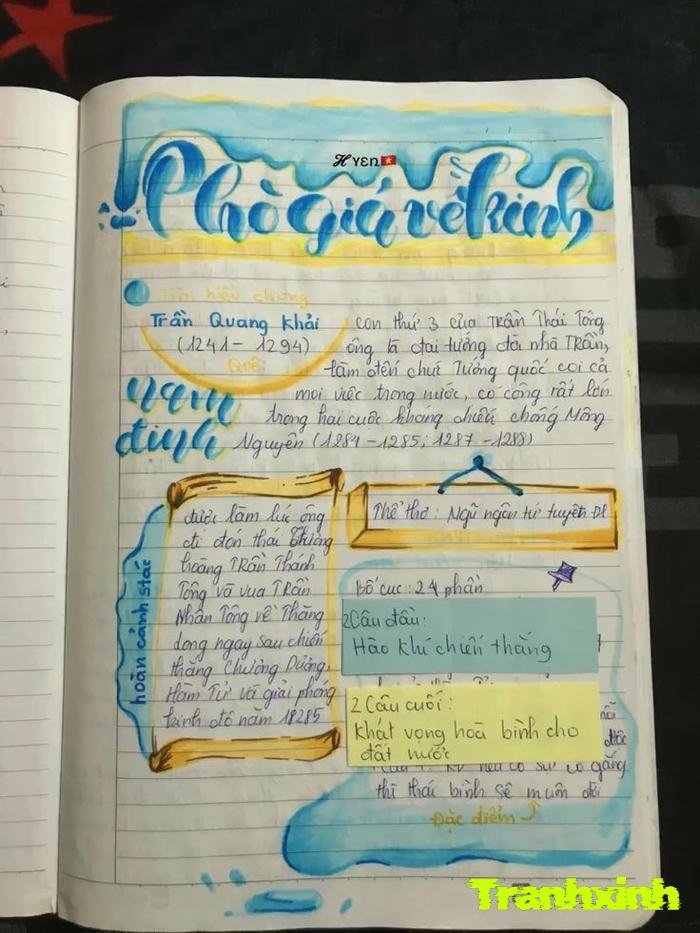 Hyên
Phò giá về kinh
Tìm hiểu chung
Trần Quang Khải
(1241 - 1294)
Quê:
nam
định
con thứ 3 của Trần Thái Tông
ông là đại tướng đời nhà Trần,
làm đến chức Tướng quốc coi cả
mọi việc trong nước, có công rất lớn
trong hai cuộc kháng chiến chống Mông
Nguyên (1284 - 1285; 1287 - 1288)
hoàn cảnh stác
được làm lúc ông
đi đón thái thượng
hoàng Trần Thánh
Tông và vua Trần
Nhân Tông về Thăng
long ngay sau chiến
thắng Chương Dương,
Hàm Tử và giải phóng
kinh đô năm 18285
Thể thơ: Ngũ ngôn tứ tuyệt Đl
Bố cục: 24 phần
2 Câu đầu:
Hào khí chiến thắng
2 Câu cuối:
khát vọng hoà bình cho
đất nước
nếu có sự cố gắng
thì thái bình sẽ muôn đời
Đặc điểm
Tranhxinh